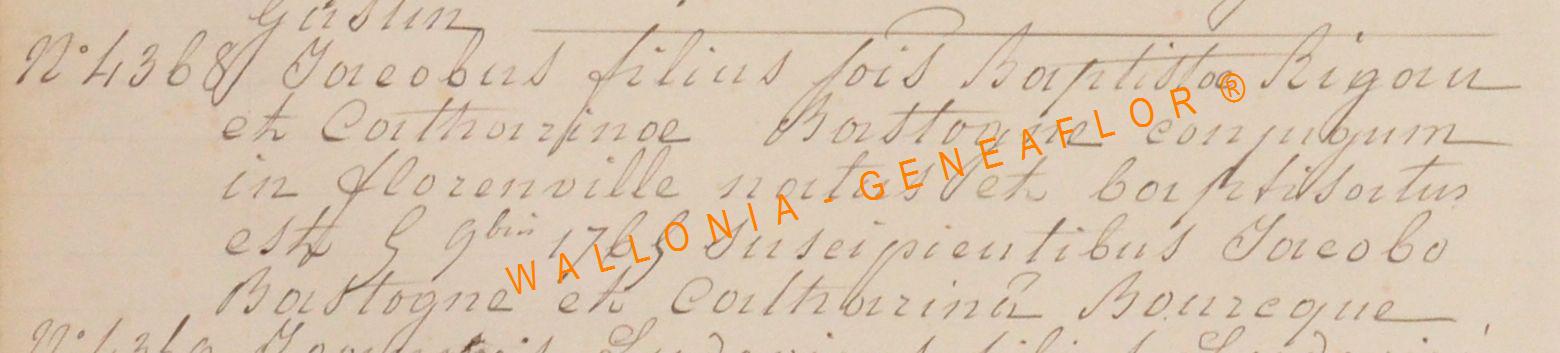 Gustin
N° 4368 Jacobus filius jois Baptista Rigau
et Catharinae Bastogne conjugum
in florenville natus et baptisatus
est 5 9bris 1765 Suscipientibus Jacobo
Bastogne et Catharinâ Bourcque
WALLONIA - GENEAFLOR ®